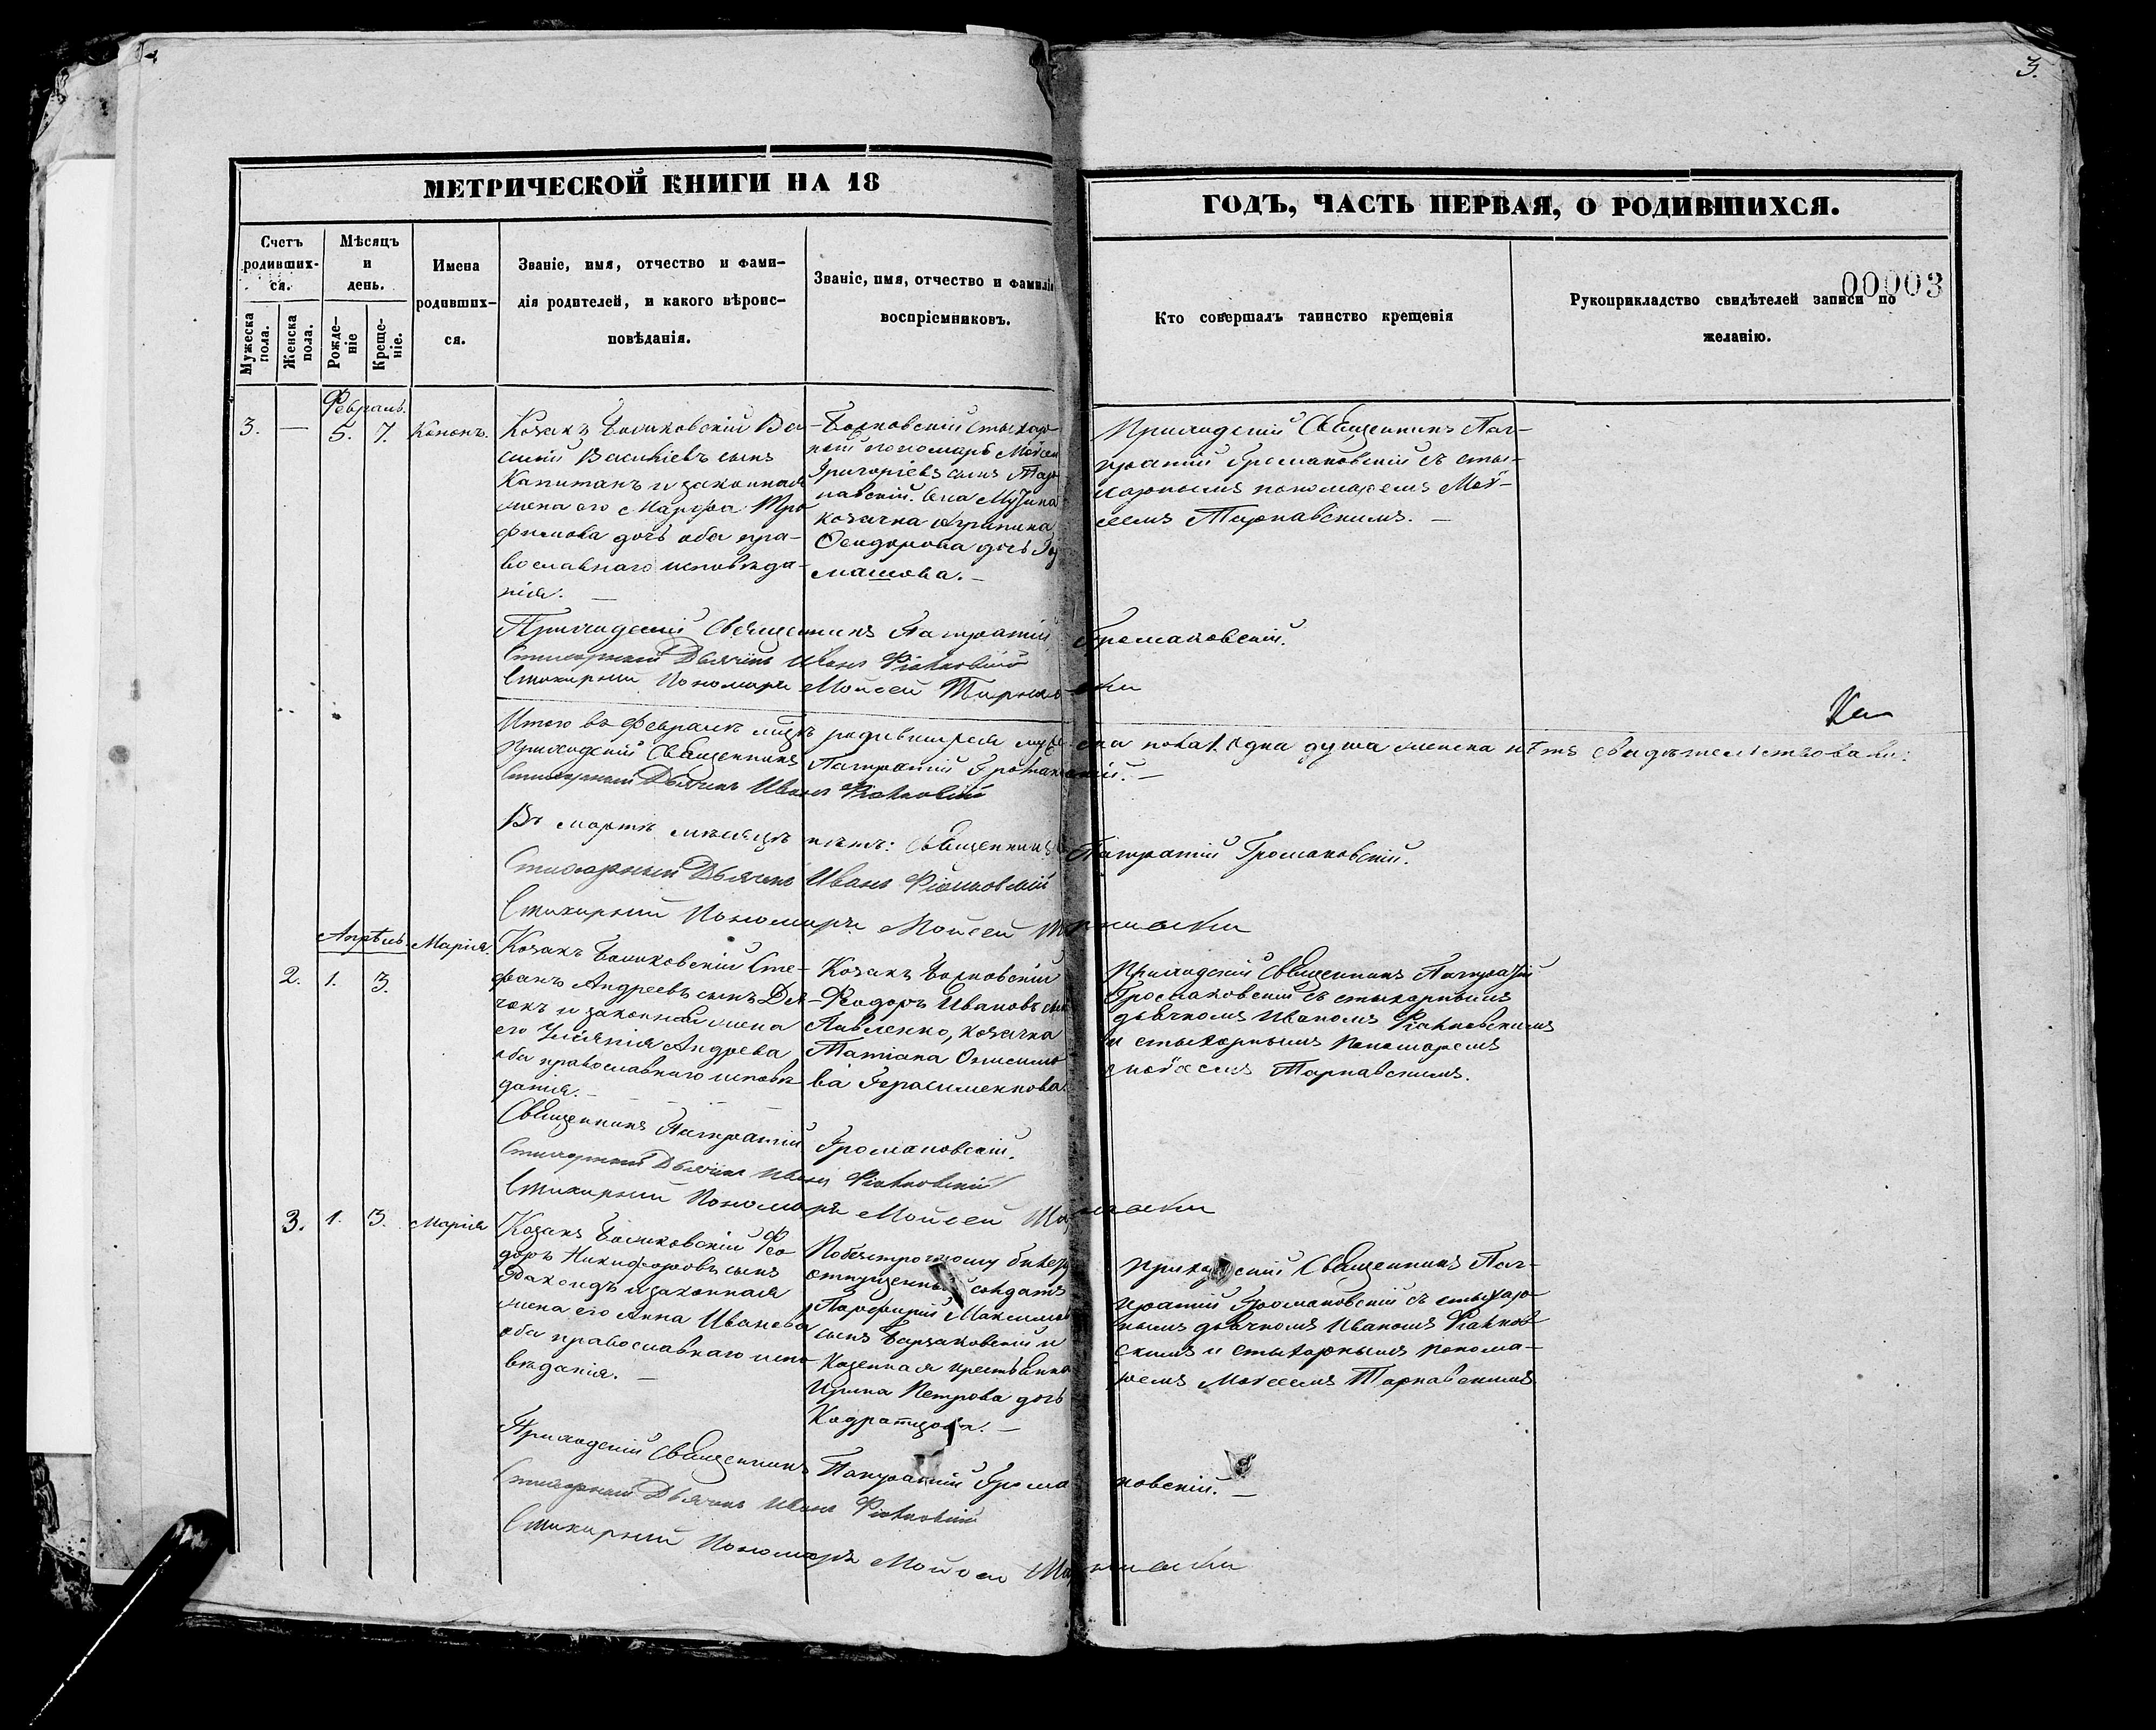 3.
МЕТРИЧЕСКОЙ КНИГИ НА 18
ГОДЪ, ЧАСТЬ ПЕРВАЯ, О РОДИВШИХСЯ.
Счетъ родивших-ся.
Мужеска пола.
Женска пола.
Мѣсяцъ и день.
Рожде-ніе
Креще-ніе.
Имена родивших-ся.
Званіе, имя, отчество и фами-
лія родителей, и какого вѣроис-
повѣданія.
Званіе, имя, отчество и фамилія
воспріемниковъ.
Кто совершалъ таинство крещенія
00003
Рукоприкладство свидѣтелей записи по
желанію.
Февраль.
3. — 5. 7. Кононъ.
Козакъ Ва-
силій Василіевъ сынъ
Капитанъ и законная
жена его Марфа Тро
фимова дочь оба пра-
вославнаго исповѣда-
нія. —
стихар-
ный пономарь Мойсей
Григоріевъ сынъ Тар
навскій.
козачка
дочь
машова. —
Приходскій Священникъ Пан-
кратій Громаковскій съ сти-
харнымъ пономаремъ Мой-
сеемъ Тарнавскимъ. —
Приходскій Священникъ Панкратій Громаковскій.
Стихарный Дьячекъ Иванъ
Стихирный Пономарь Мойсей Тарнавски
Итого въ Февралѣ мцѣ родившихся мужеска пола 1. одна душа женска нѣтъ свидѣтельствовали:
Приходскій Священникъ Панкратій Громаковскій. —
Стихарный Дьячекъ Иванъ
Въ мартѣ мѣсяцѣ нѣтъ: Священникъ Панкратій Громаковскій.
Стихарный Дьячекъ Иванъ
Стихирный Пономарь Мойсей Тарнавски
Апрѣль
2. 1. 3. Марія.
Козакъ Сте-
фанъ Андреевъ сынъ Дя
чокъ и законная жена
его Андреева
оба православнаго исповѣ-
данія. —
Козакъ
Феодоръ Ивановъ сынъ
Павленко, козачка
Татіана Онисимо
ва Герасименкова.
Приходскій Священникъ Панкратій
Громаковскій съ стихарнымъ
дьячкомъ Иваномъ
и стихарнымъ Пономаремъ
Мойсеемъ Тарнавскимъ.
Священникъ Панкратій Громаковскій.
Стихарный Дьячекъ Иванъ
Стихирный Пономарь Мойсей Тарнавски
3. 1. 3. Марія
Козакъ Фео
доръ Никифоровъ сынъ
и законная
жена его Анна Иванова
оба православнаго испо
вѣданія. —
отпущенный солдатъ
Порфирій Максимовъ
сынъ и
Казенная крестьянка
Ирина Петрова дочь
Приходскій Священникъ Пан-
кратій Громаковскій съ стихар-
нымъ дьячкомъ Иваномъ
скимъ и стихарнымъ понома-
ремъ Мойсеемъ Тарнавскимъ.
Приходскій Священникъ Панкратій Громаковскій. —
Стихарный Дьячекъ Иванъ
Стихирный Пономарь Мойсей Тарнавски